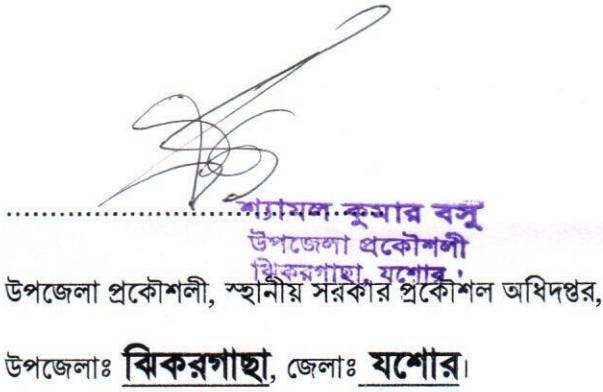 শ্যামল কুমার বসু
উপজেলা প্রকৌশলী
ঝিকরগাছা, যশোর।
উপজেলা প্রকৌশলী, স্হানীয় সরকার প্রকৌশল অধিদপ্তর,
উপজেলাঃ ঝিকরগাছা, জেলাঃ যশোর।